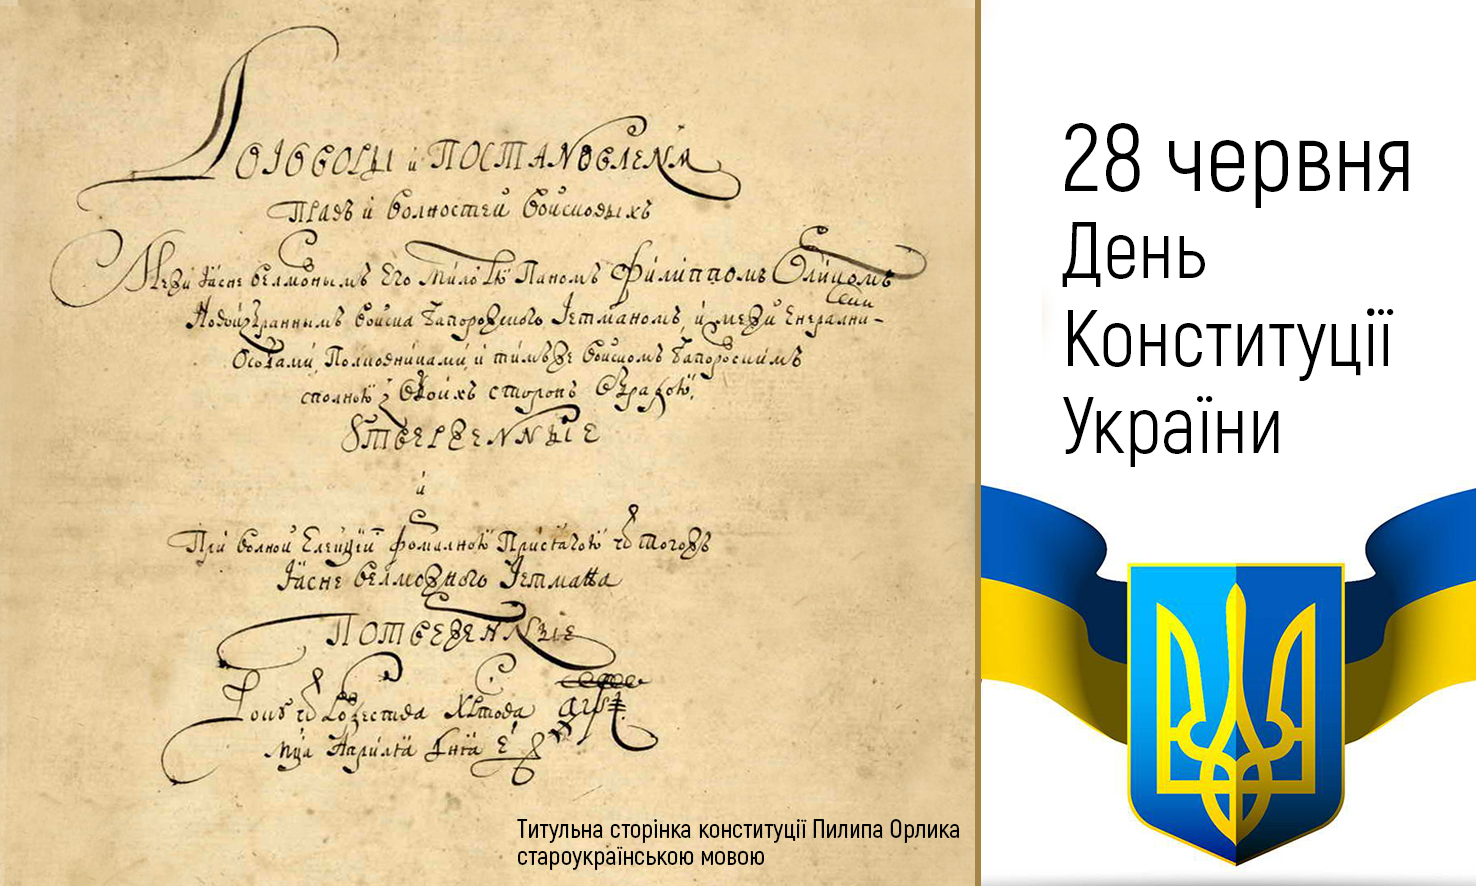 Договоры и Постановленѧ
Правъ и волностей войсковыхъ
Межи Ясне велможнымъ Его милостю Паномъ Филиппомъ Орликомъ
Новоизбраннымъ войска Запорозкого Гетманомъ, и межи Енералними
Особами, Полковниками, и тимъже войскомъ Запорозскимъ
сполною з обоихъ сторонъ обрадою.
Утверженные
и
При волной Елекции формалною Присягою ѿ тогожъ
Ясне велможного Гетмана
Потверженные
Року ѿ Рожества Христова
мца Априля дня е
Титульна сторінка конституції Пилипа Орлика
староукраїнською мовою
28 червня
День
Конституції
України